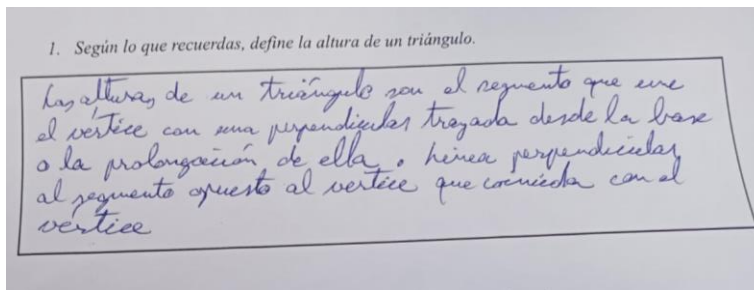 1. Según lo que recuerdas, define la altura de un triángulo.
Las alturas de un triángulo son el segmento que une
el vértice con una perpendicular trazada desde la base
o la prolongación de ella. Linea perpendicular
al segmento opuesto al vertice que coincida con el
vértice